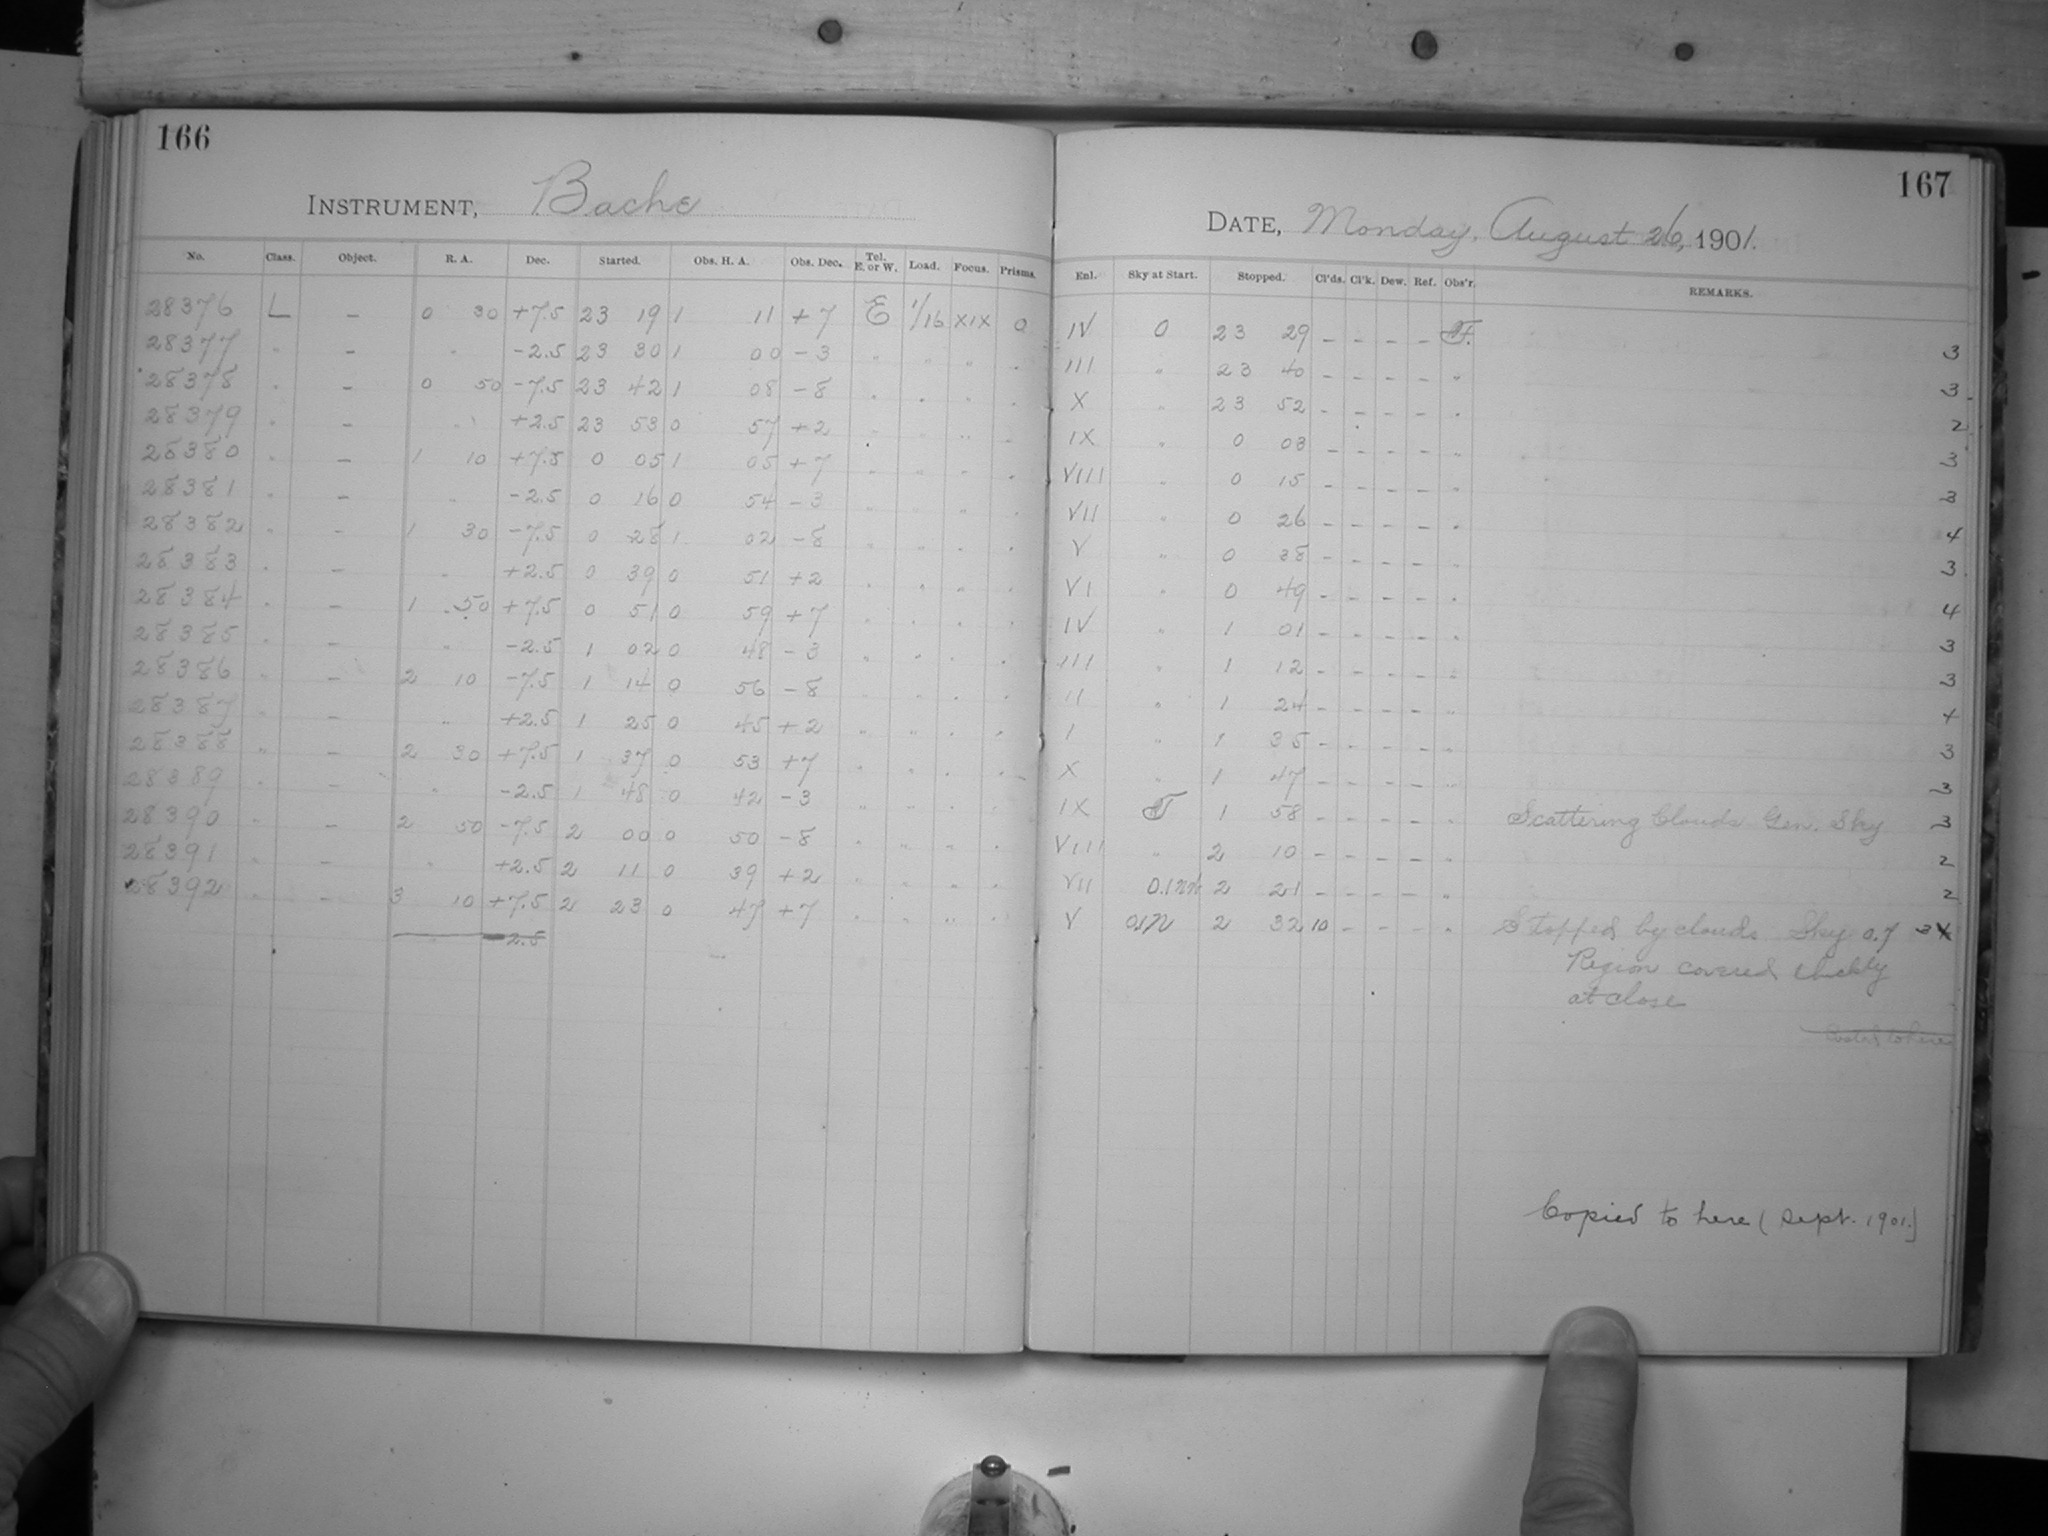 166
INSTRUMENT, Bache
No. Class. Object. R. A. Dec. Started. Obs. H. A. Obs. Dec. Tel. E. or W. Load. Focus. Prisms.
28376 L - 0 30 +7.5 23 19 1 11 +7 E 1/16 XIX 0
28377 " - " -2.5 23 30 1 00 -3 " " " "
28378 " - 0 50 -7.5 23 42 1 08 -8 " " " "
28379 " - " +2.5 23 53 0 57 +2 " " " "
28380 " - 1 10 +7.5 0 05 1 05 +7 " " " "
28381 " - " -2.5 0 16 0 54 -3 " " " "
28382 " - 1 30 -7.5 0 28 1 02 -8 " " " "
28383 " - " +2.5 0 39 0 51 +2 " " " "
28384 " - 1 50 +7.5 0 51 0 59 +7 " " " "
28385 " - " -2.5 1 02 0 48 -3 " " " "
28386 " - 2 10 -7.5 1 14 0 56 -8 " " " "
28387 " - " +2.5 1 25 0 45 +2 " " " "
28388 " - 2 30 +7.5 1 37 0 53 +7 " " " "
28389 " - " -2.5 1 48 0 42 -3 " " " "
28390 " - 2 50 -7.5 2 00 0 50 -8 " " " "
28391 " - " +2.5 2 11 0 39 +2 " " " "
28392 " - 3 10 +7.5 2 23 0 47 +7 " " " "
-2.5
167
DATE, Monday, August 26, 1901.
Enl. Sky at Start. Stopped. Cl'ds. Cl'k. Dew. Ref. Obs'r. REMARKS.
IV 0 23 29 - - - - 3
III " 23 40 - - - - " 3
X " 23 52 - - - - " 2
IX " 0 03 - - - - " 3
VIII " 0 15 - - - - " 3
VII " 0 26 - - - - " 4
V " 0 38 - - - - " 3
VI " 0 49 - - - - " 4
IV " 1 01 - - - - " 3
III " 1 12 - - - - " 3
II " 1 24 - - - - " 4
I " 1 35 - - - - " 3
X " 1 47 - - - - " 3
IX 1 58 - - - - " Scattering Clouds Gen. Sky 3
VIII " 2 10 - - - - " 2
VII 0.1 2 21 - - - - " 2
V 2 32 10 - - - " Stopped by clouds Sky 0.7 3
Region covered thickly
at close
Copied to here (Sept. 1901.)